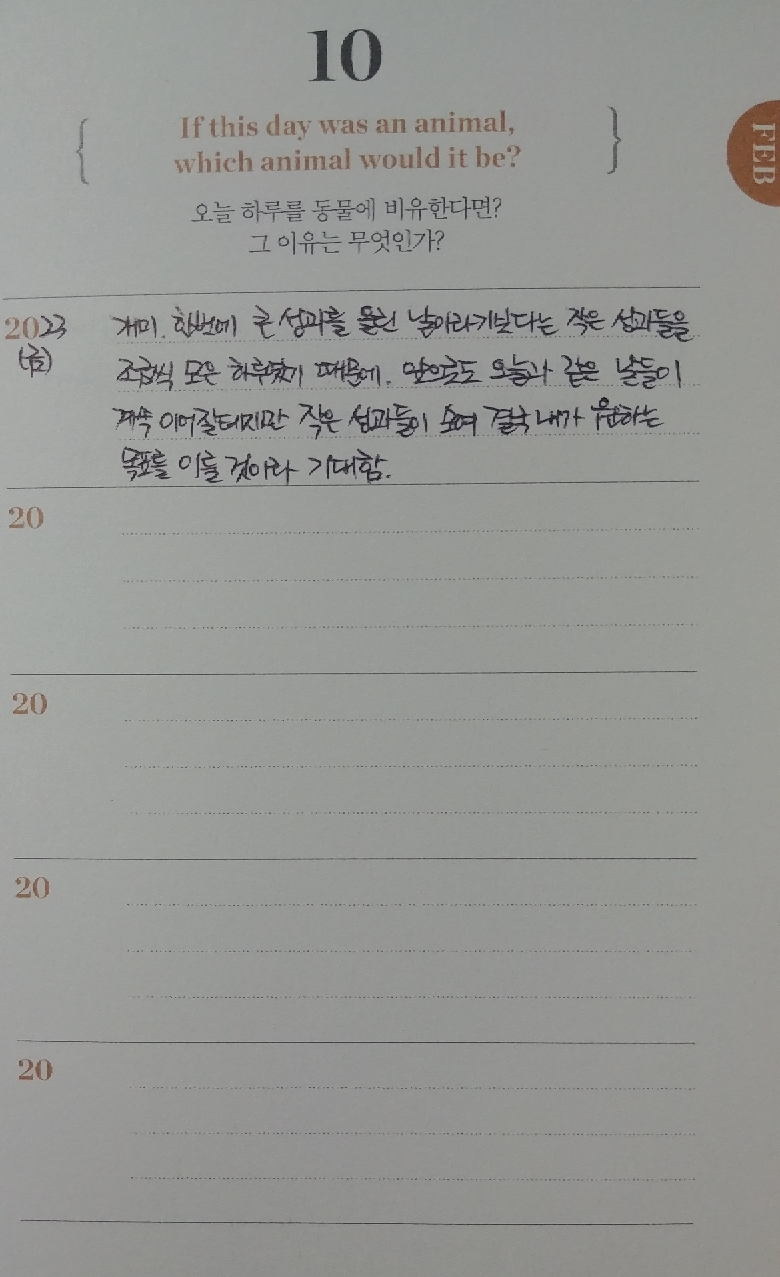 10
If this day was an animal,
which animal would it be?
FEB
오늘 하루를 동물에 비유한다면?
그 이유는 무엇인가?
2023 개미. 한번에 큰 성과를 올린 날이라기보다는 작은 성과들을
(금) 조금씩 모은 하루였기 때문에. 앞으로도 오늘과 같은 날들이
계속 이어질테지만 작은 성과들이 모여 결국 내가 원하는
목표를 이룰 것이라 기대함.
20
20
20
20